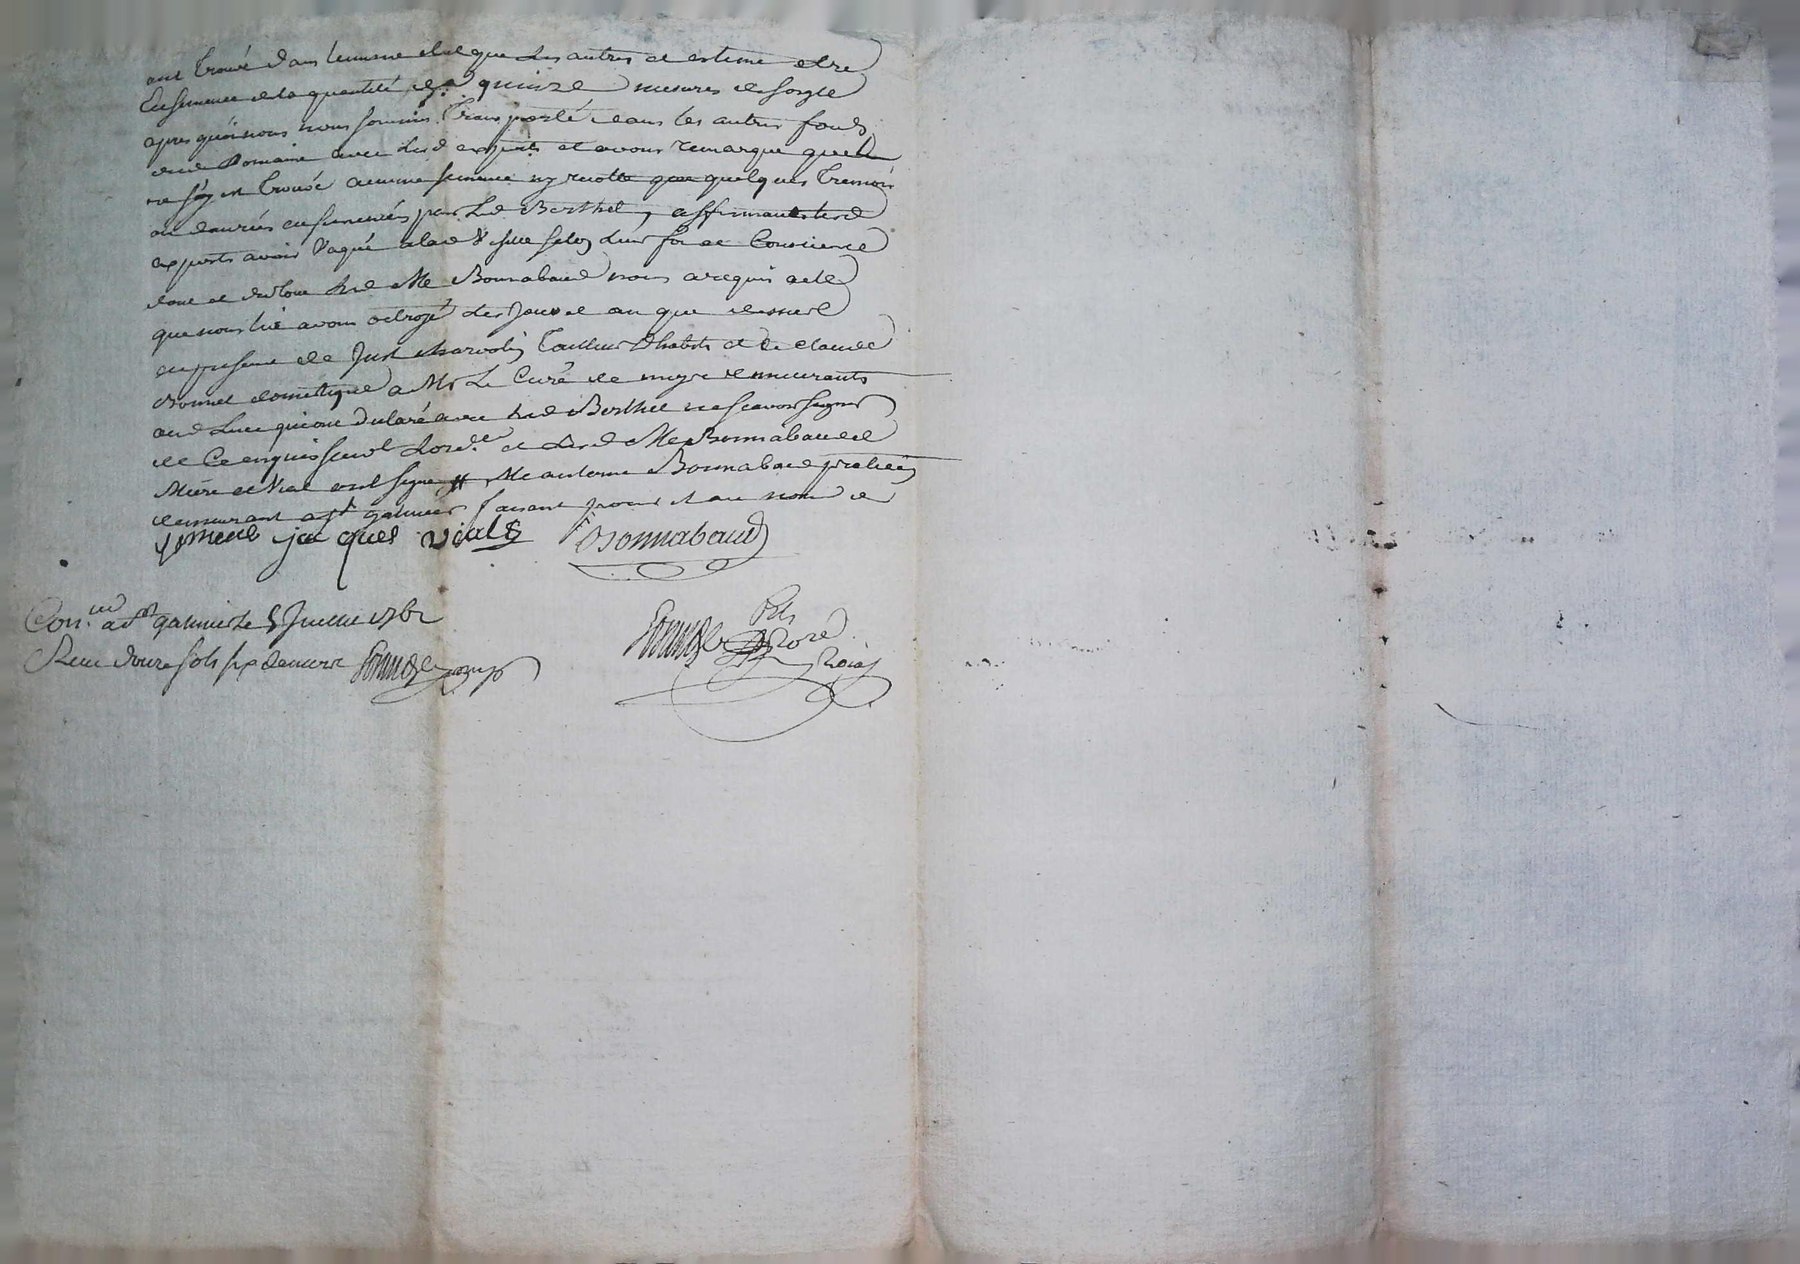 ont trouvé dans le mesme etat que les autres et estimé etre
Ensemencé de la quantité de quinze mesures de soigle
apres quoi nous nous sommes transporté dans les autres fonds
dud Domaine avec lesd experts et avons remarque quil
ne sy est trouvé aucune semence ny recolte que quelques tremois
ou danrées ensemencés par led Berthel, affirmants lesd
experts avoir vaqué alad visitte selon leur foi et Conscience
dont et du tout led Me Bonnabaud nous a requis acte
que nous lui avons octroyé les jour et an que dessus
en presence de Just tailleur Dhabits et de claude
Bonnet domestique a Mr Le Curé de demeurants
aud Lieu qui ont declaré avec led Berthel ne scavoir signer
de Ce enquis suivt Lordce et led Me Bonnabaud
et Vial ont signe Me antoine Bonnabaud praticien
demeurant a st galmier faisant pour et au nom de
jacques vials Bonnabaud
Con.lle a st galmier le 5 Juillet 1762
Receu douze sols six deniers
Not Roial